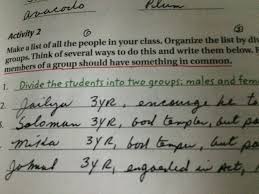 avacodo Plum
Activity 2
Make a list of all the people in your class. Organize the list by di
groups. Think of several ways to do this and write them below. F
members of a group should have something in common.
1. Divide the students into two groups; males and fema
2. Jailya 3yR, encourge he to
3. Solomon 3yR, bad temper, but pa
4. Miska 3yR, bad temper, but pa
3yR, engaeded in Act,